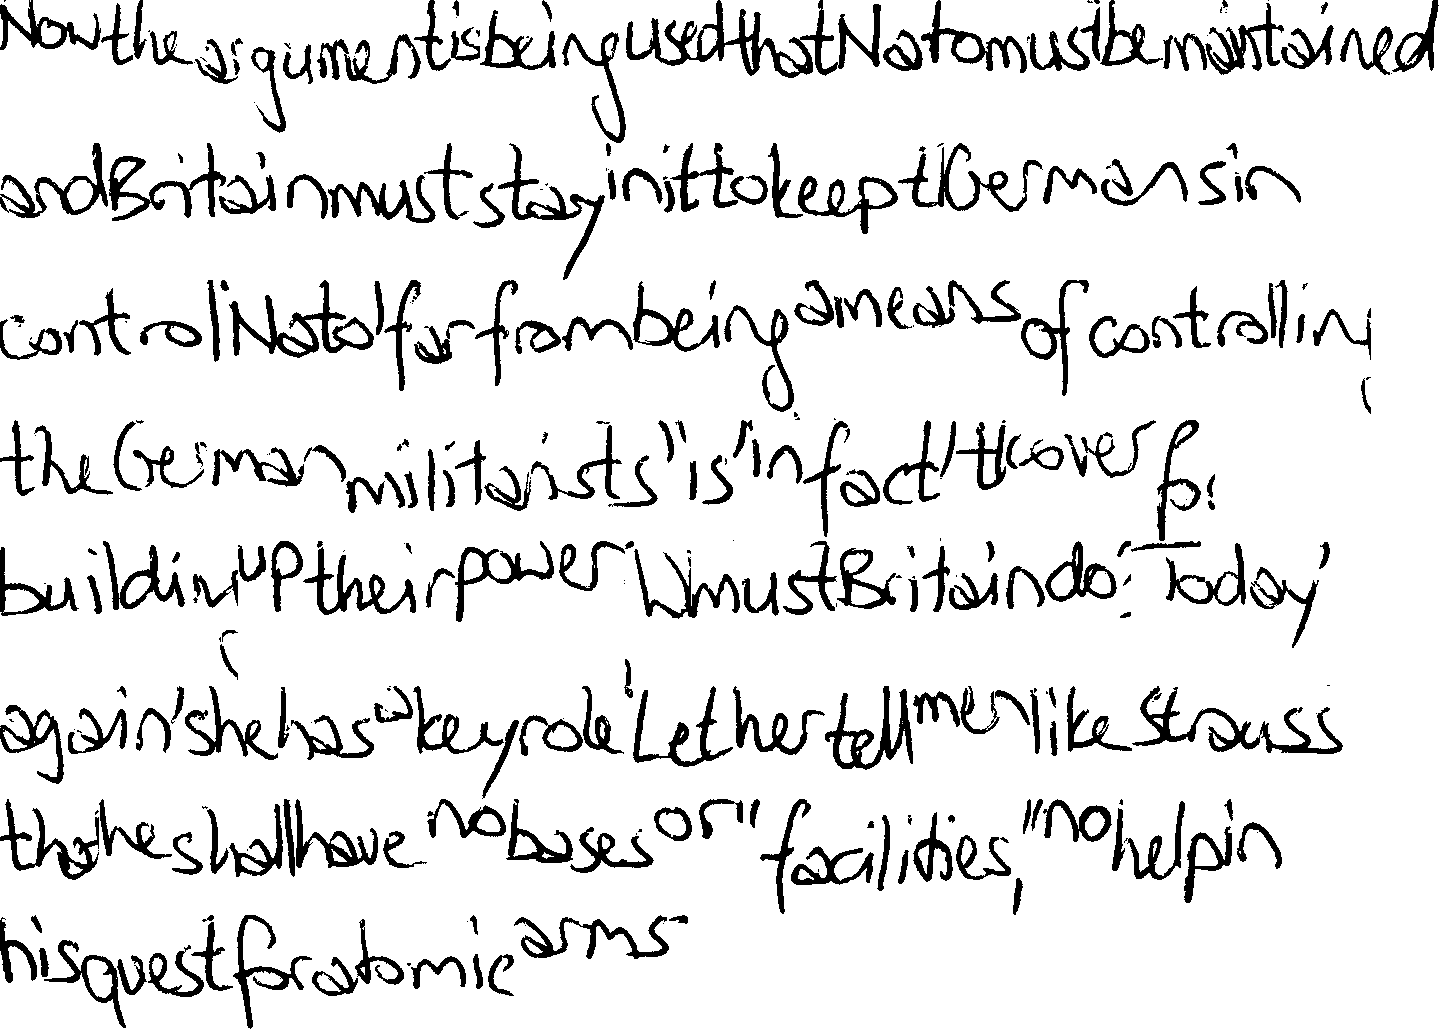 Now the argument is being used that Nato must be maintained
and Britain must stay in it to keep the Germans in
control Nato, far from being a means of controlling
the German militarists, is, in fact, the cover for
building up their power. What must Britain do? Today,
again, she has a key role. Let her tell men like Strauss
that he shall have no bases or "facilities," no help in
his quest for atomic arms